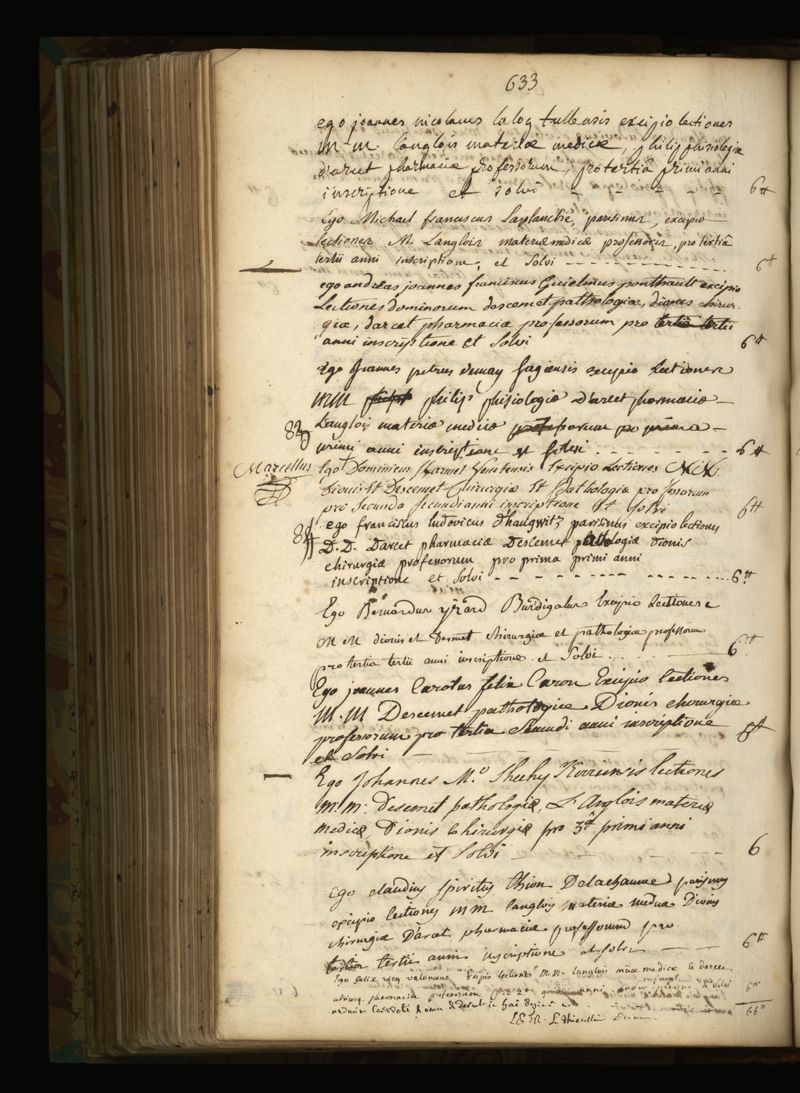 633
ego joannes nicolaus laloy tullensis excipio lectiones
M-M. langlois materiæ medicæ, philip phisiologiæ
darcet pharmaciæ professorum, pro tertiâ primi anni
inscriptione et solvi - - - - - 6tt
Ego Michael franciscus Laplanche, parisinus, excipio
lectiones M. Langlois materiæ medicæ professoris, pro tertiâ
tertii anni inscriptione, et solvi - - - - 6tt
ego andreas joannes franciscus Guielmus ponthault excipio
Lectiones dominorum descemet pathologiæ, dionis chirur-
giæ, darcet pharmaciæ professorum pro tertiâ tertii
anni inscriptione et solvi 6tt
Ego Joannes petrus excipio Lectiones
MM philip phisiologiæ Darcet pharmaciæ
Langlois materiæ medicæ professorum pro prima
primi anni inscriptione et solvi - - - - 6tt
Marcellus Ego Dominicus Excipio Lectiones
Dionis Et Descemet Chirurgiæ Et Pathologiæ professorum
pro Secunda Secundi anni inscriptione Et Solvi 6tt
ego franciscus ludovicus d'haugwitz parisinus excipio lectiones
D.D. Darcet pharmaciæ Descemet pathologiæ dionis
chirurgiæ professorum pro prima primi anni
inscriptione et solvi - - - - 6tt
Ego Bernardus Burdigalus Excipio Lectiones
MM dionis et Desmet chirurgiæ et pathologiæ professorum
pro tertia tertii anni inscriptione et Solvi 6tt
Ego joannes Carolus felix Caron Excipio lectiones
M.M Descemet pathologiæ Dionis chirurgiæ
professorum pro tertia Secundi anni inscriptione
et Solvi 6tt
Ego Johannes M.º Sheehy Kerriensis lectiones
m.m. Desemet pathologiæ, L'Anglois materiæ
medicæ, Dionis Chirurgiæ pro 3â primi anni
inscriptione et Solvi 6
Ego claudius spiritus thion Delachaume parisinus
excipio lectiones MM langlois materiæ medicæ Dionis
chirurgiæ Darcet pharmaciæ professorum pro
tertia tertii anni inscriptione et solvi 6tt
Ego felix Excipio lectiones M.M. langlois medicæ
pharmaciæ professorum anni 6tt
66tt